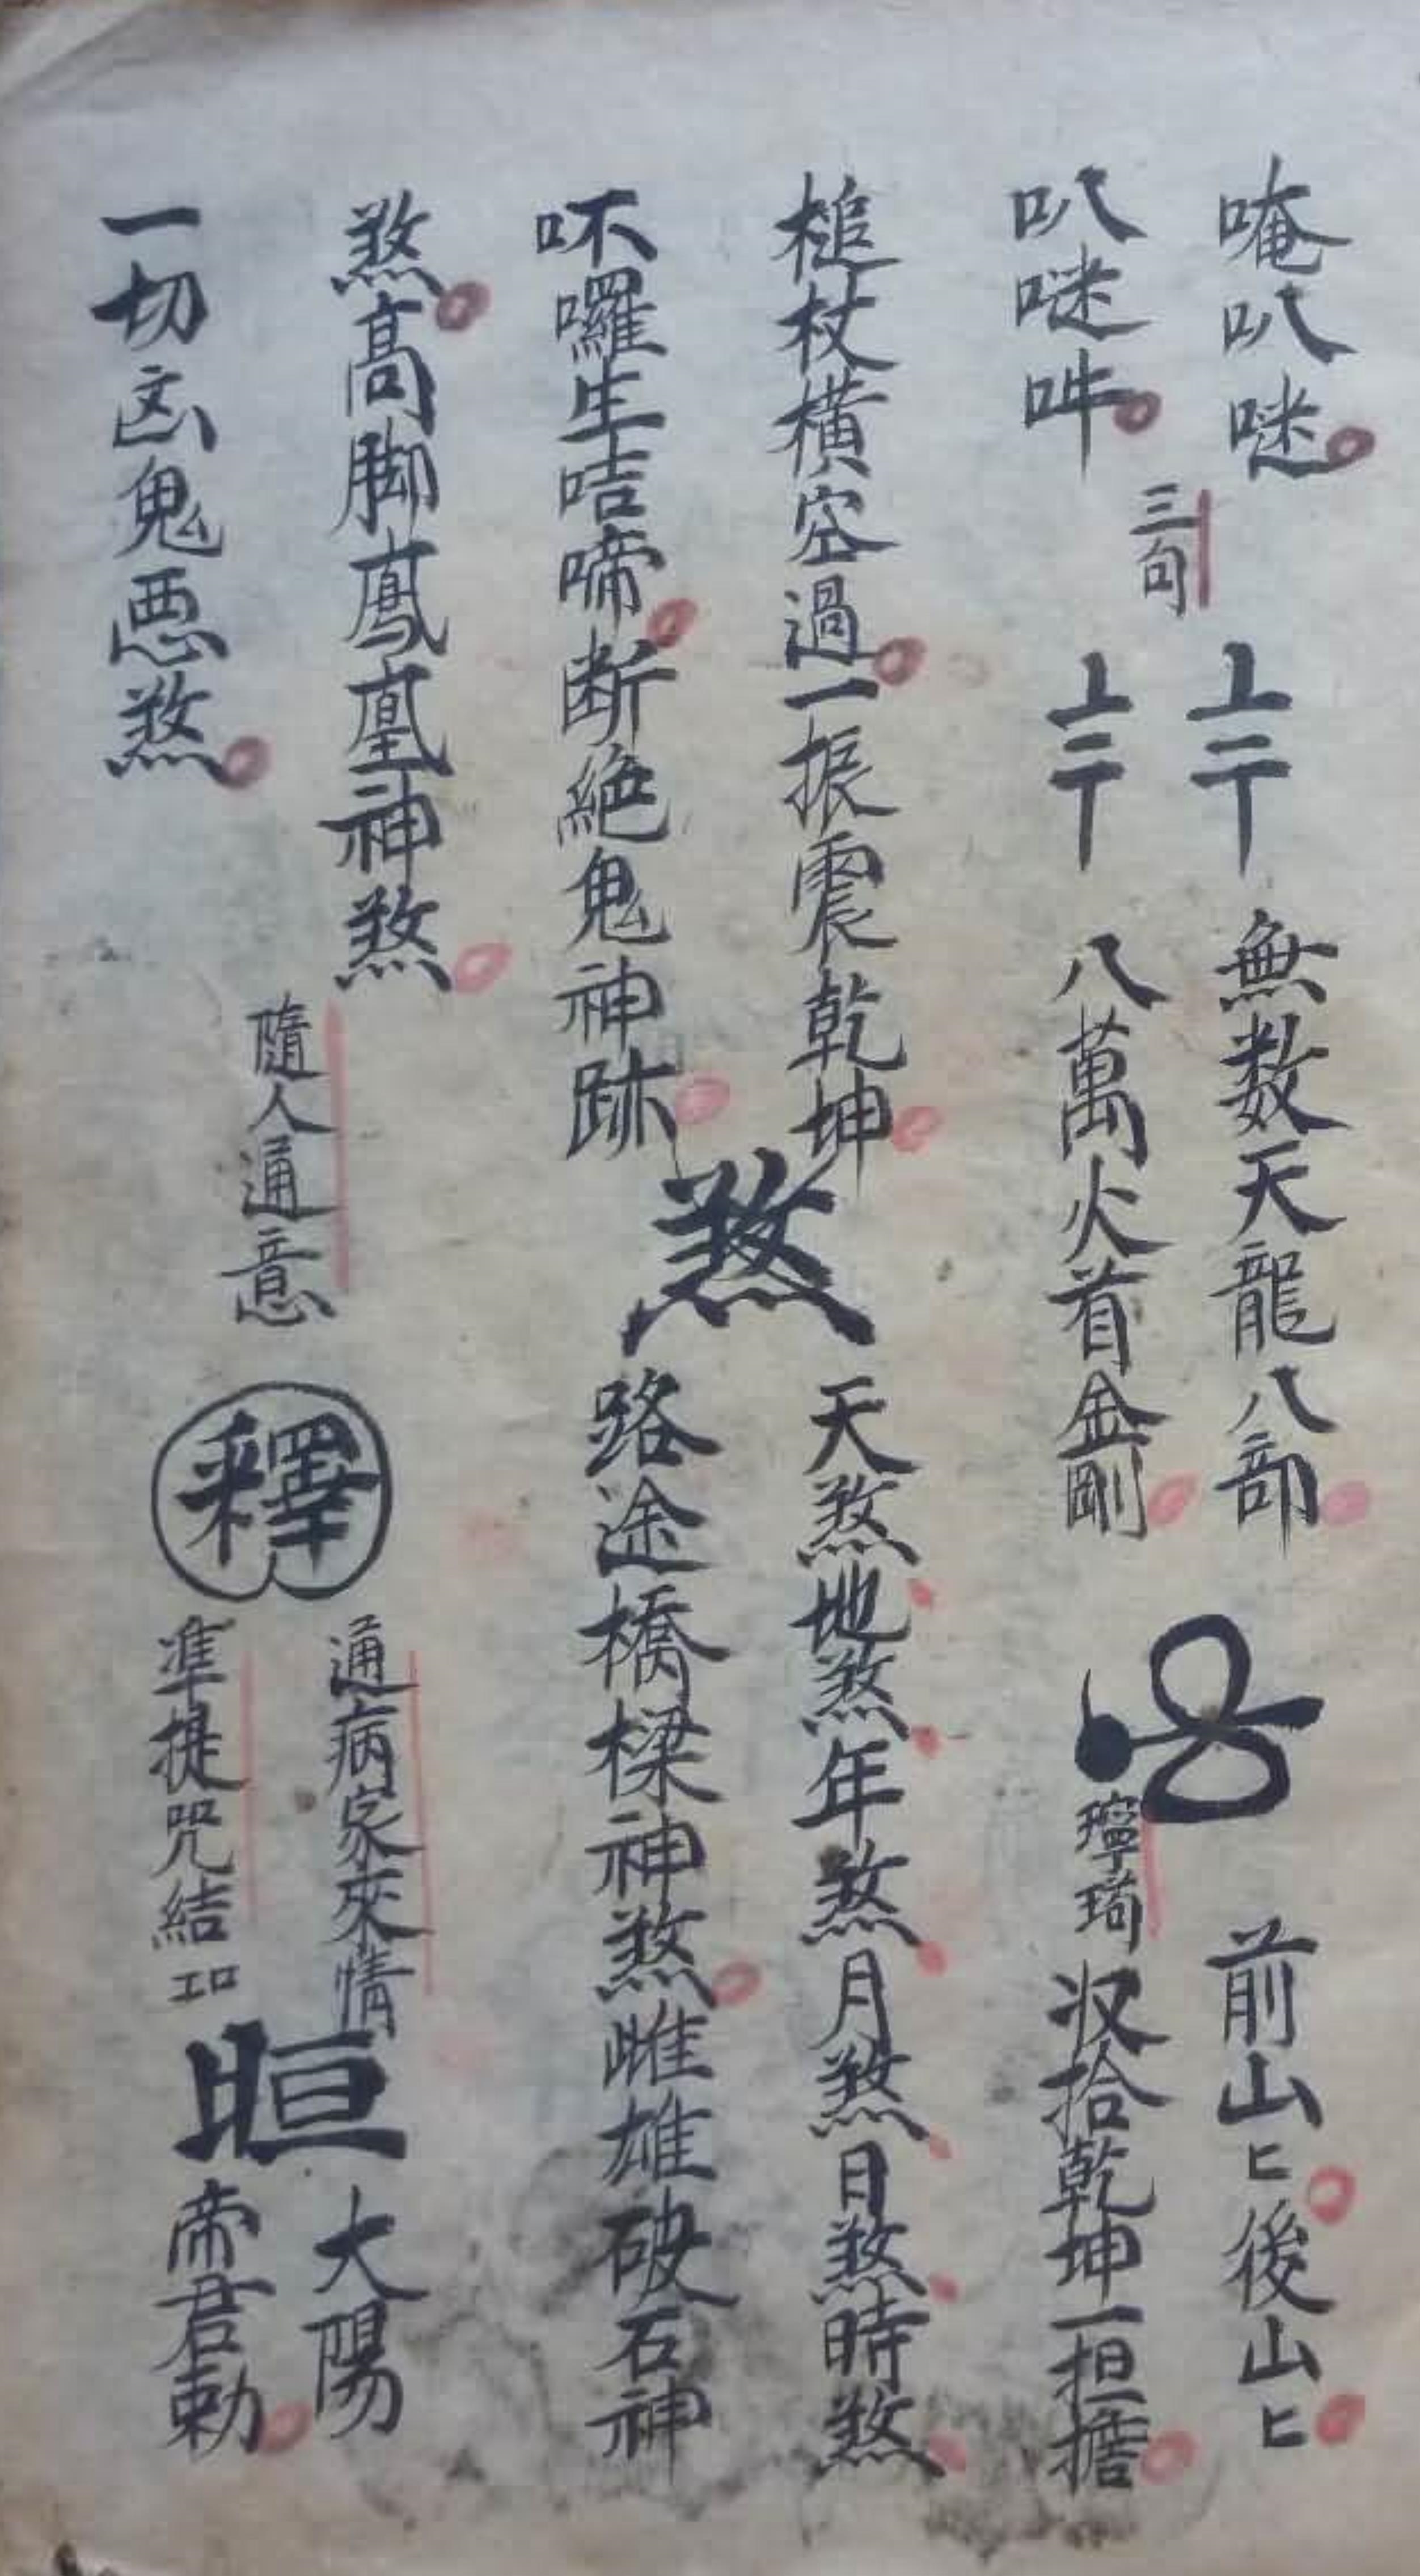 唵叭𠺗
叭𠺗吽
三句
無数天龍八部
八萬火首金剛
前山匕後山匕
收拾乾坤一担擔
槌杖橫空過一振震乾坤
吥囉生咭啼断絕鬼神跡
煞
天煞地煞年煞月煞日煞時煞
路途橋樑神煞雌雄破石神
煞高脚鳳凰神煞
一切凶鬼悪煞
隨人通意
釋
通病家來情
準提咒結
大陽
帝君勅